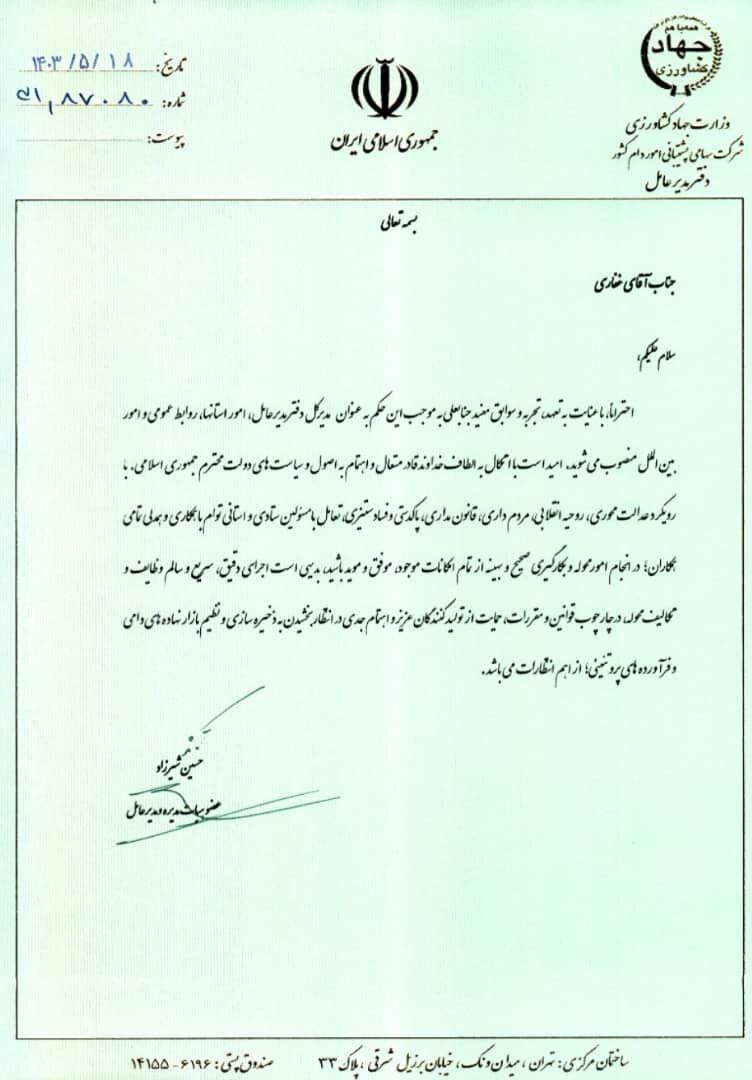 همه با هم
جهاد
کشاورزی
وزارت جهاد کشاورزی
شرکت سهامی پشتیبانی امور دام کشور
دفتر مدیر عامل
جمهوری اسلامی ایران
تاریخ: ۱۴۰۳/۵/۱۸
شماره: ۸۷۰۸۰
پیوست:
بسمه تعالی
جناب آقای غفاری
سلام علیکم؛
احتراماً، با عنایت به تعهد، تجربه و سوابق مفید جنابعالی به موجب این حکم به عنوان مدیرکل دفتر مدیرعامل، امور استانها، روابط عمومی و امور
بین الملل منصوب می شوید. امید است با اتکال به الطاف خداوند قادر متعال و اهتمام به اصول و سیاست های دولت محترم جمهوری اسلامی، با
رویکرد عدالت محوری، روحیه انقلابی، مردم داری، قانون مداری، پاکدستی و فساد ستیزی، تعامل با مسئولین ستادی و استانی توام با همکاری و همدلی تمامی
همکاران؛ در انجام امور محوله و بکارگیری صحیح و بهینه از تمام امکانات موجود، موفق و موید باشید. بدیهی است اجرای دقیق، سریع و سالم وظایف و
تکالیف محوله در چارچوب قوانین و مقررات، حمایت از تولیدکنندگان عزیز و اهتمام جدی در انتظار بخشیدن به ذخیره سازی و تنظیم بازار نهاده های دامی
و فرآورده های پروتئینی؛ از اهم انتظارات می باشد.
حسین شیرزاد
عضو هیات مدیره و مدیرعامل
ساختمان مرکزی: تهران، میدان ونک، خیابان برزیل شرقی، پلاک ۳۳ صندوق پستی: ۶۱۹۶-۱۴۱۵۵